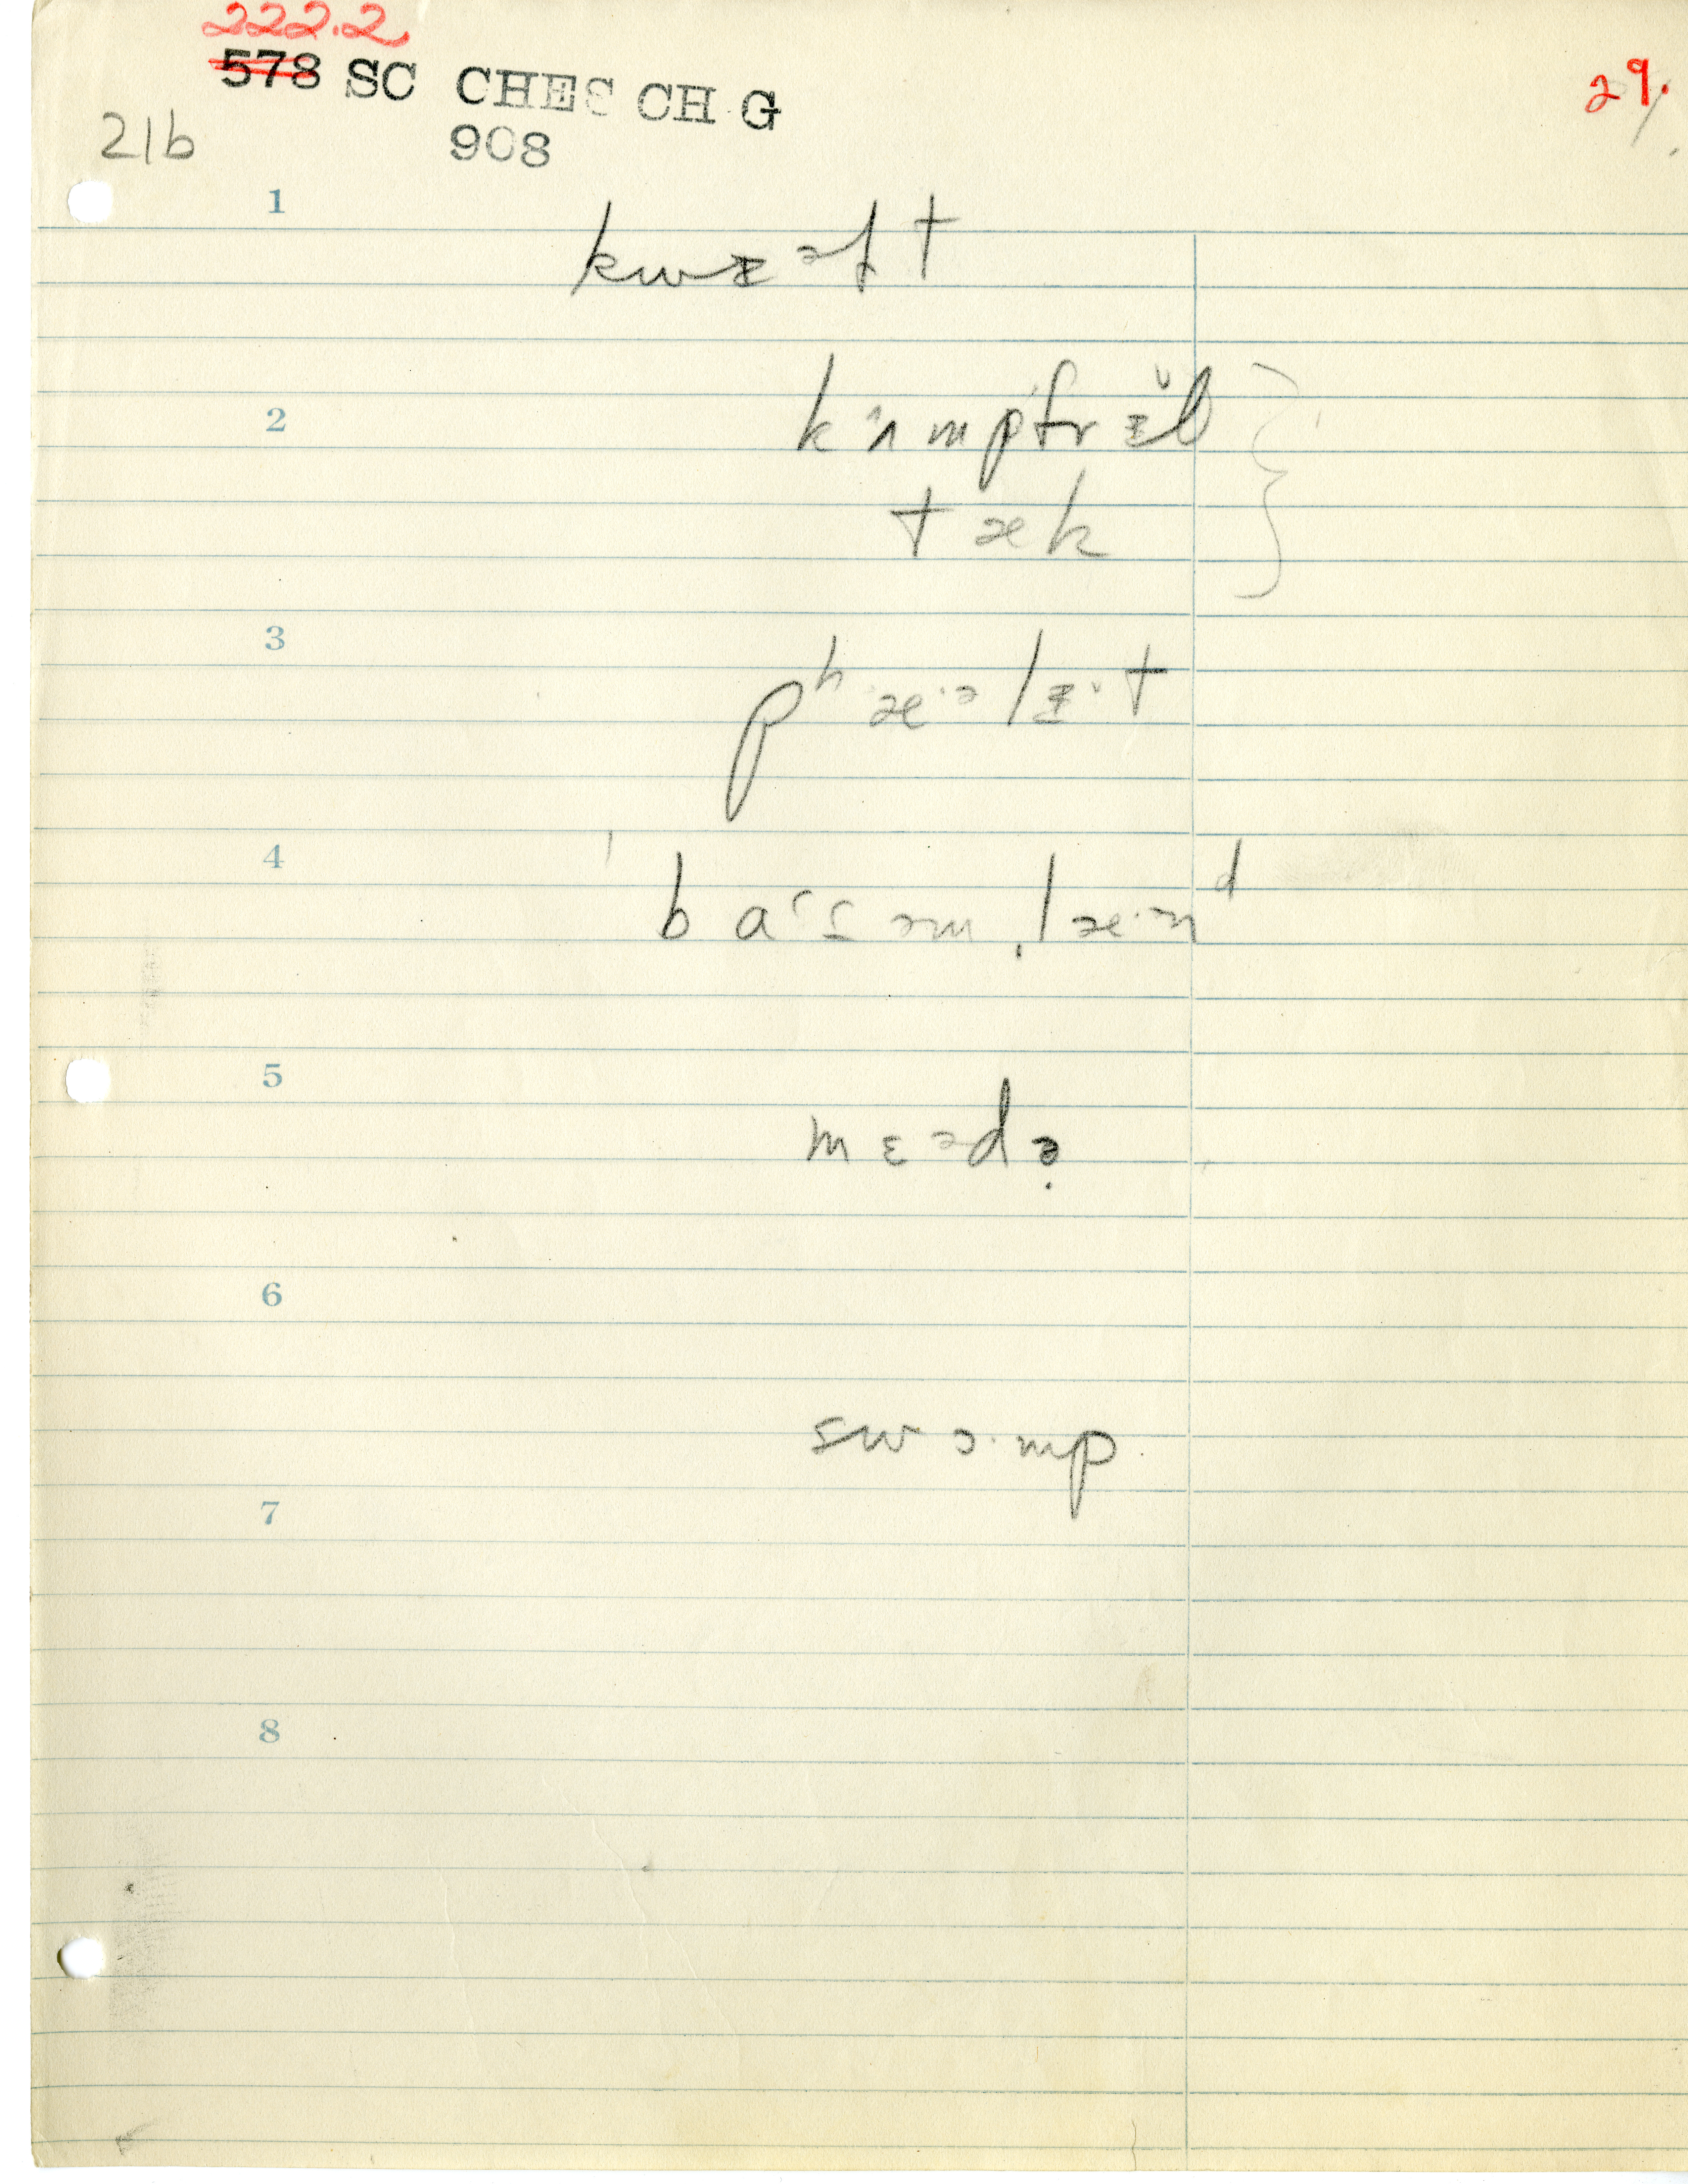 222.2
578 SC CHES CH G
29.
21b
908
1
kwɪəɫt
2
kʌmpfrɪ̆b
tæk
3
pʰæ·əlɪ·t
4
bɑˑsəm ̩læ·nᵈ
5
mɛədə̣
6
swɔ·mp
7
8